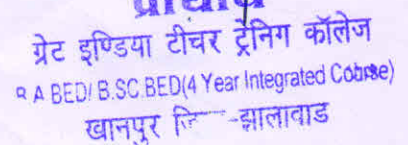 प्राचार्य
ग्रेट इण्डिया टीचर ट्रेनिग कॉलेज
B A BED/ B.SC.BED(4 Year Integrated Course)
खानपुर -झालावाड